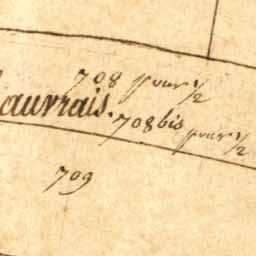 708 pour 1/2
auvrais.
708 bis pour 1/2
709